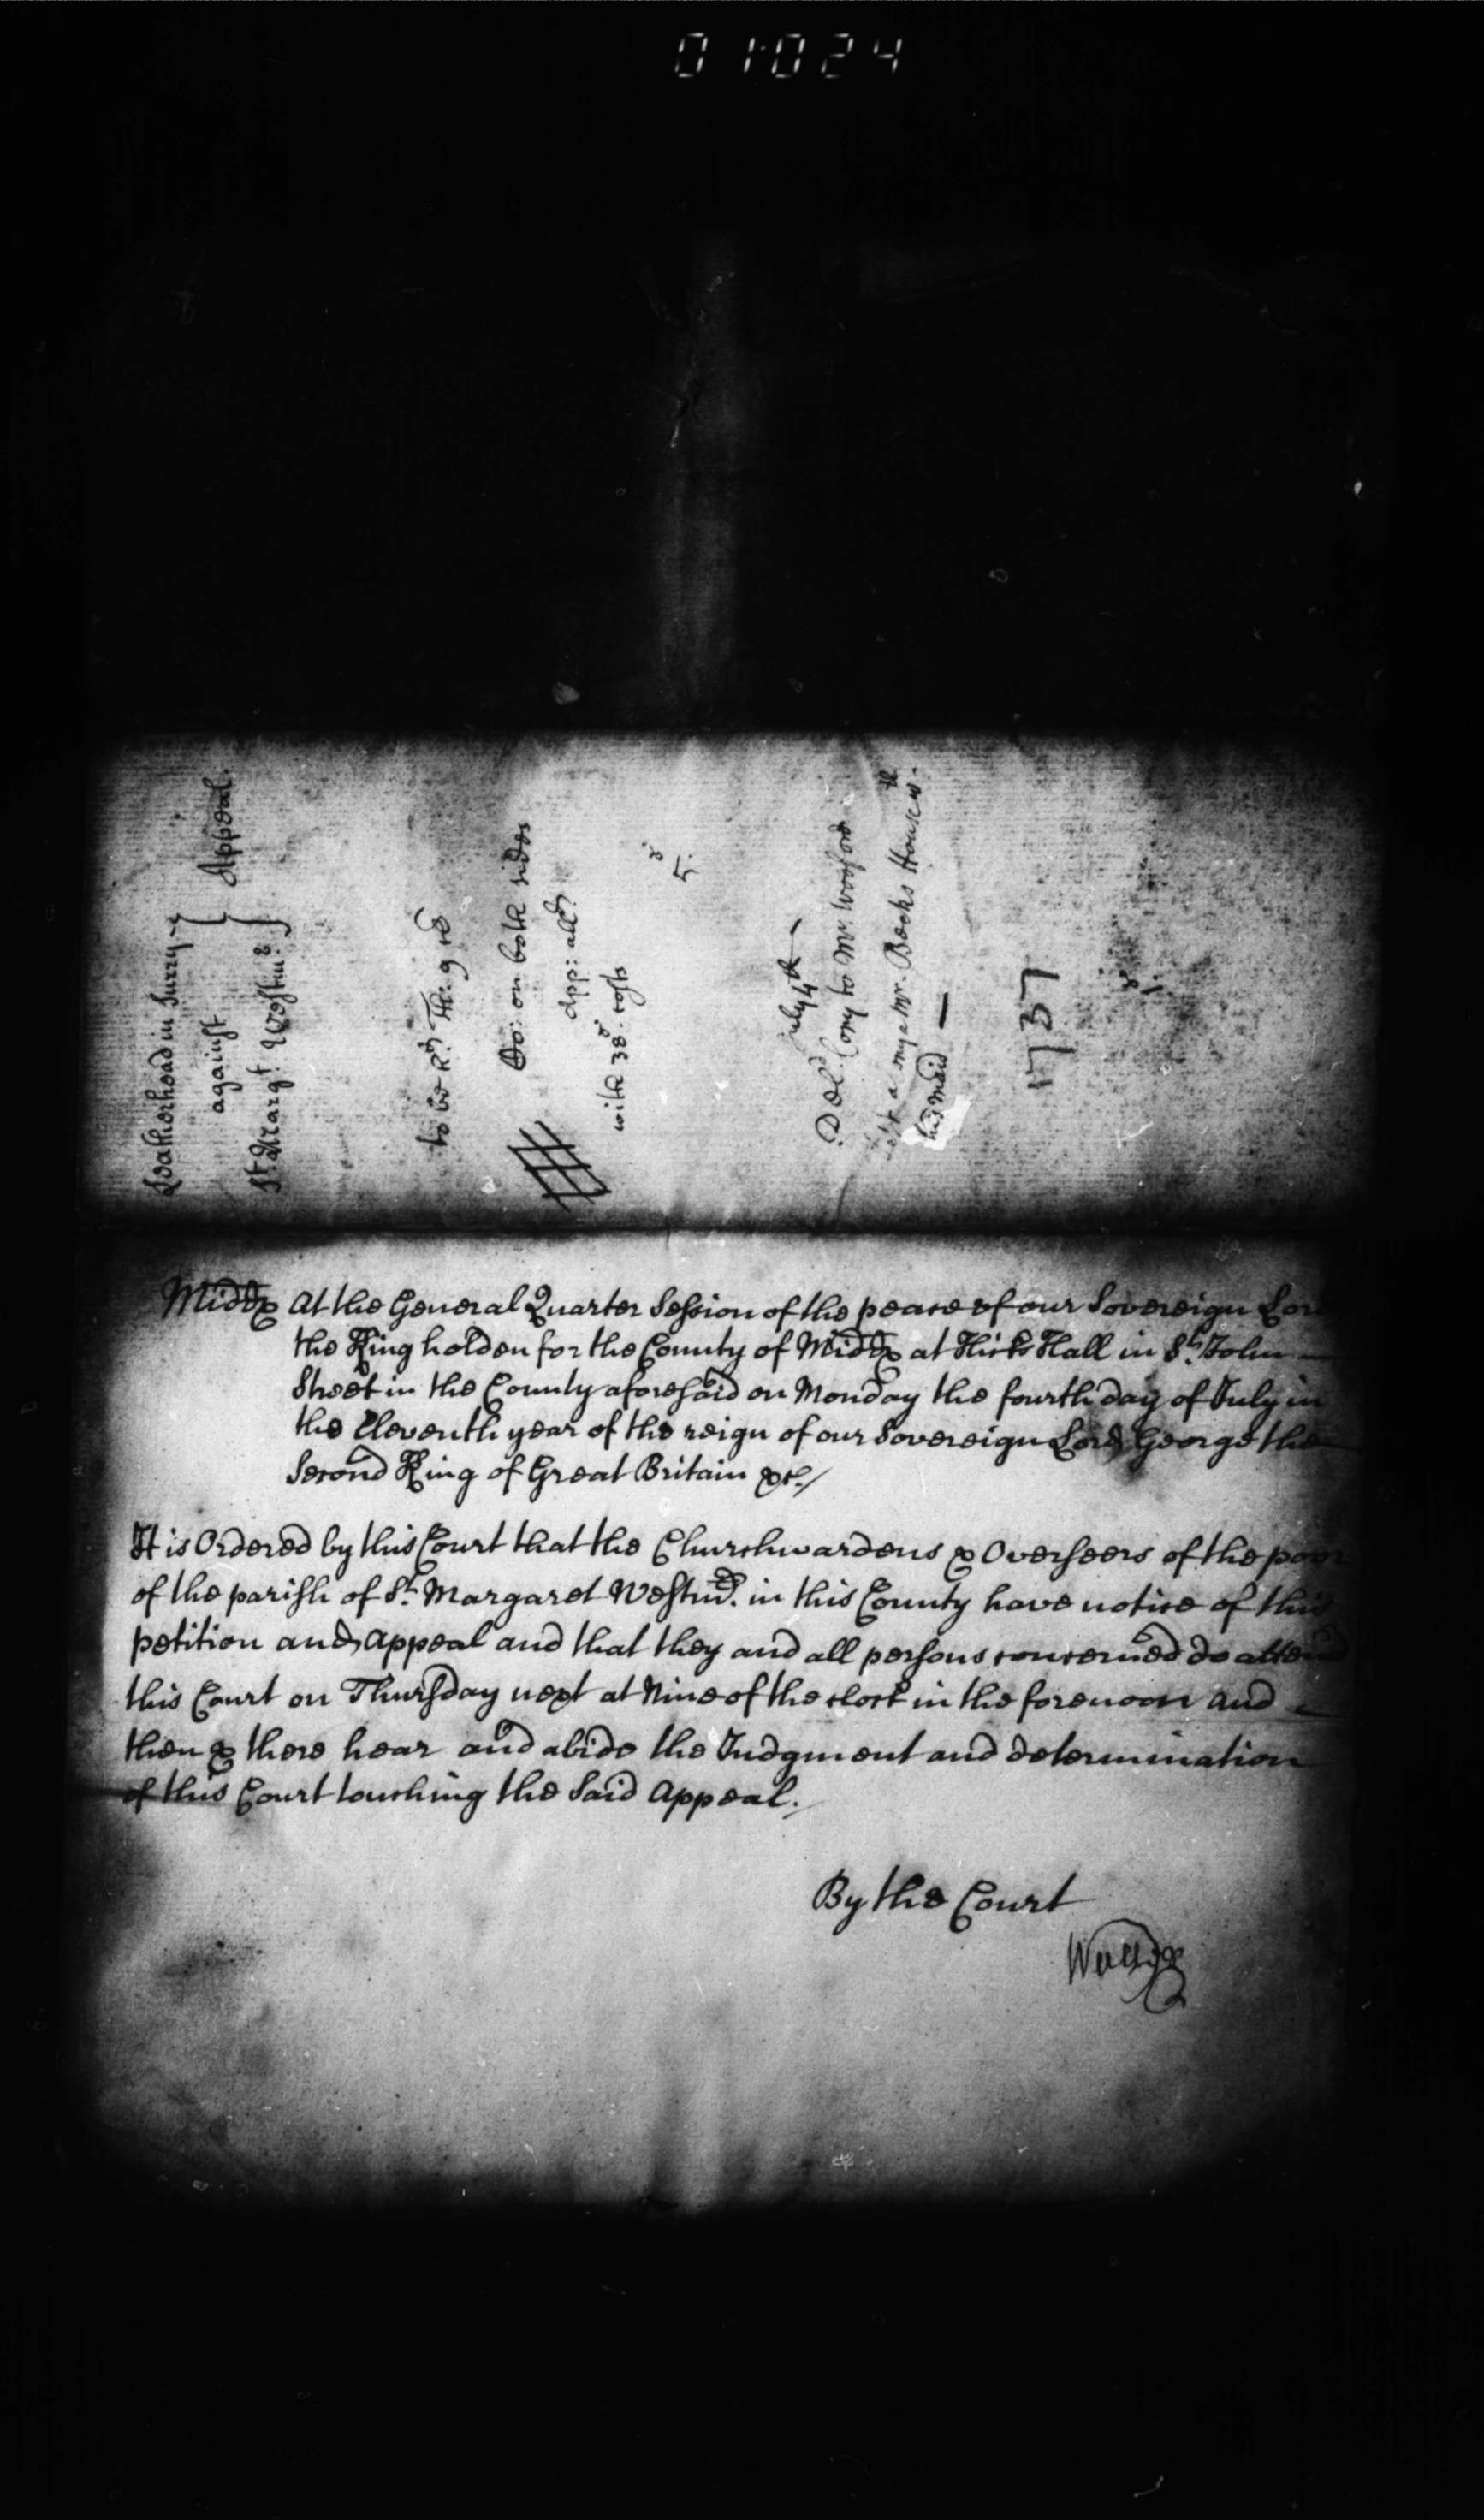 01:024
Leatherhead in Surry
against
St. Margt. Westmr.
Appeal.
to be hd. Th: 9 
Co: on both sides
App: alld.
with 38s. costs
5
July 4th
Deld. Copy to Mr. 
left a  Mr. House wth
his maid
1737
Middx At the General Quarter Session of the peace of our Sovereign Lord
the King holden for the County of Middx at Hicks Hall in St. John
Street in the County aforesaid on Monday the fourth day of July in
the Eleventh year of the reign of our Sovereign Lord George the
Second King of Great Britain &c.
It is Ordered by this Court that the Churchwardens & Overseers of the poor
of the parish of St. Margaret Westmr. in this County have notice of this
petition and appeal and that they and all persons concerned do attend
this Court on Thursday next at Nine of the clock in the forenoon and
then & there hear and abide the Judgment and determination
of this Court touching the said Appeal.
By the Court